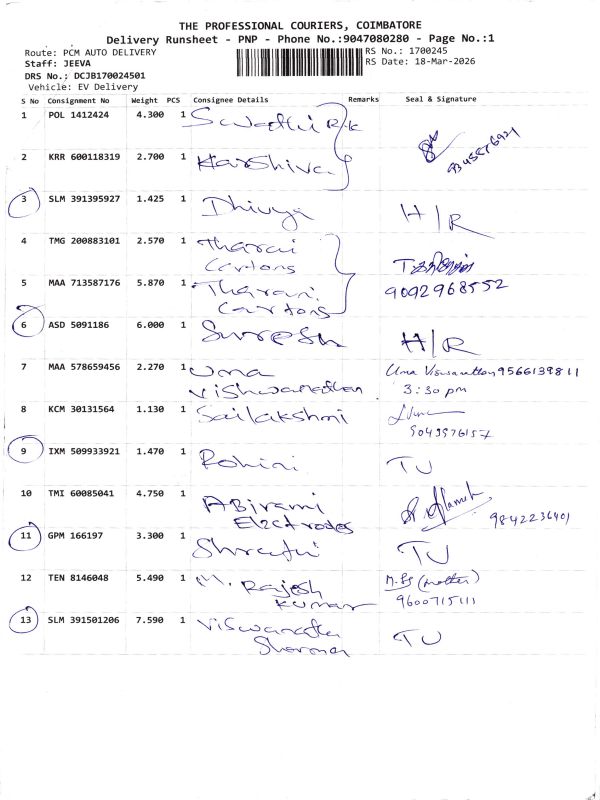 THE PROFESSIONAL COURIERS, COIMBATORE
Delivery Runsheet - PNP - Phone No.:9047080280 - Page No.:1
Route: PCM AUTO DELIVERY
RS No.: 1700245
Staff: JEEVA
RS Date: 18-Mar-2026
DRS No.: DCJB170024501
Vehicle: EV Delivery
S No Consignment No Weight PCS Consignee Details Remarks Seal & Signature
1 POL 1412424 4.300 1 Swathi R.K
2 KRR 600118319 2.700 1 Harshiva
3 SLM 391395927 1.425 1 Dhivya H/R
4 TMG 200883101 2.570 1 Tharai
Cartons
5 MAA 713587176 5.870 1 Tharani 9092968552
Cartons
6 ASD 5091186 6.000 1 Suresh H/R
7 MAA 578659456 2.270 1 Uma Uma Viswanathan 9566139811
Vishwanathan 3:30 pm
8 KCM 30131564 1.130 1 Sailakshmi
9 IXM 509933921 1.470 1 Rohini TU
10 TMI 60085041 4.750 1 Abirami 9842236401
Electrodes
11 GPM 166197 3.300 1 Shruthi TU
12 TEN 8146048 5.490 1 M. Rajesh (mother)
Kumar 9600715111
13 SLM 391501206 7.590 1 Viswanatha TU
Sharma